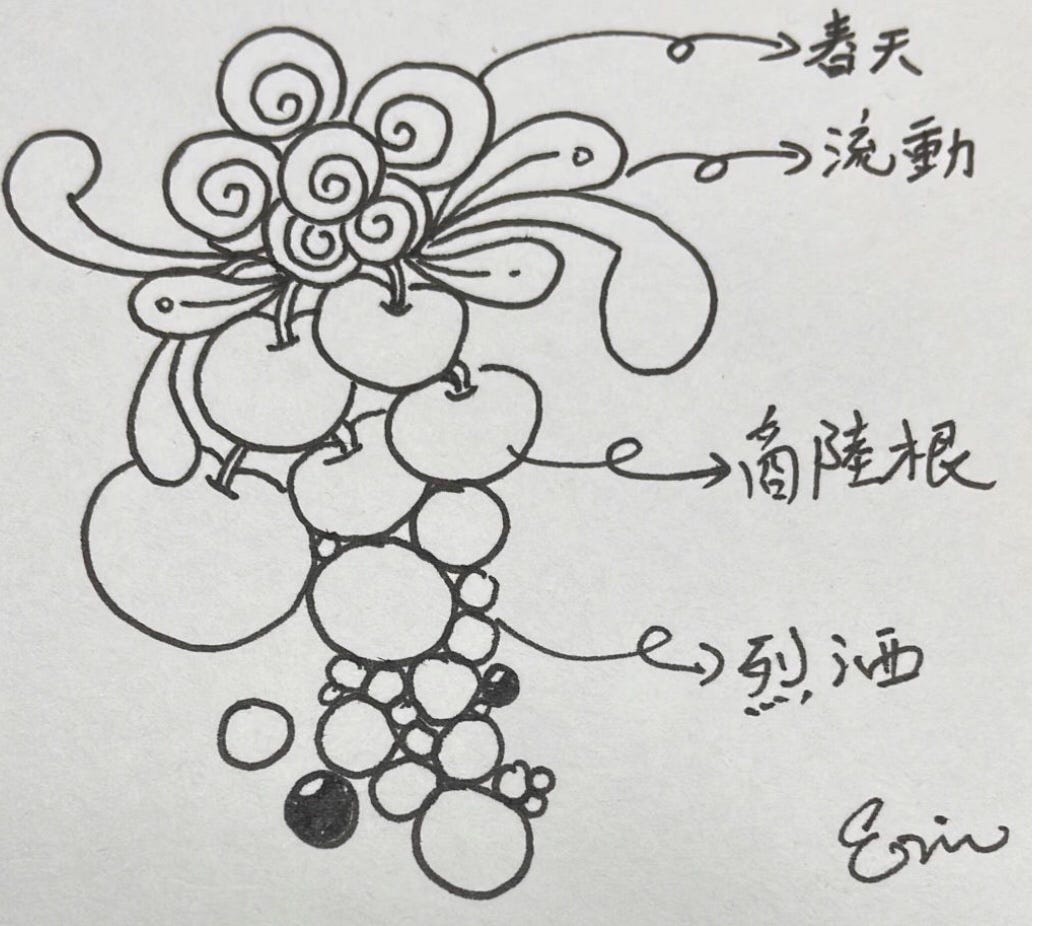 春天
流動
商陸根
烈酒
Erin